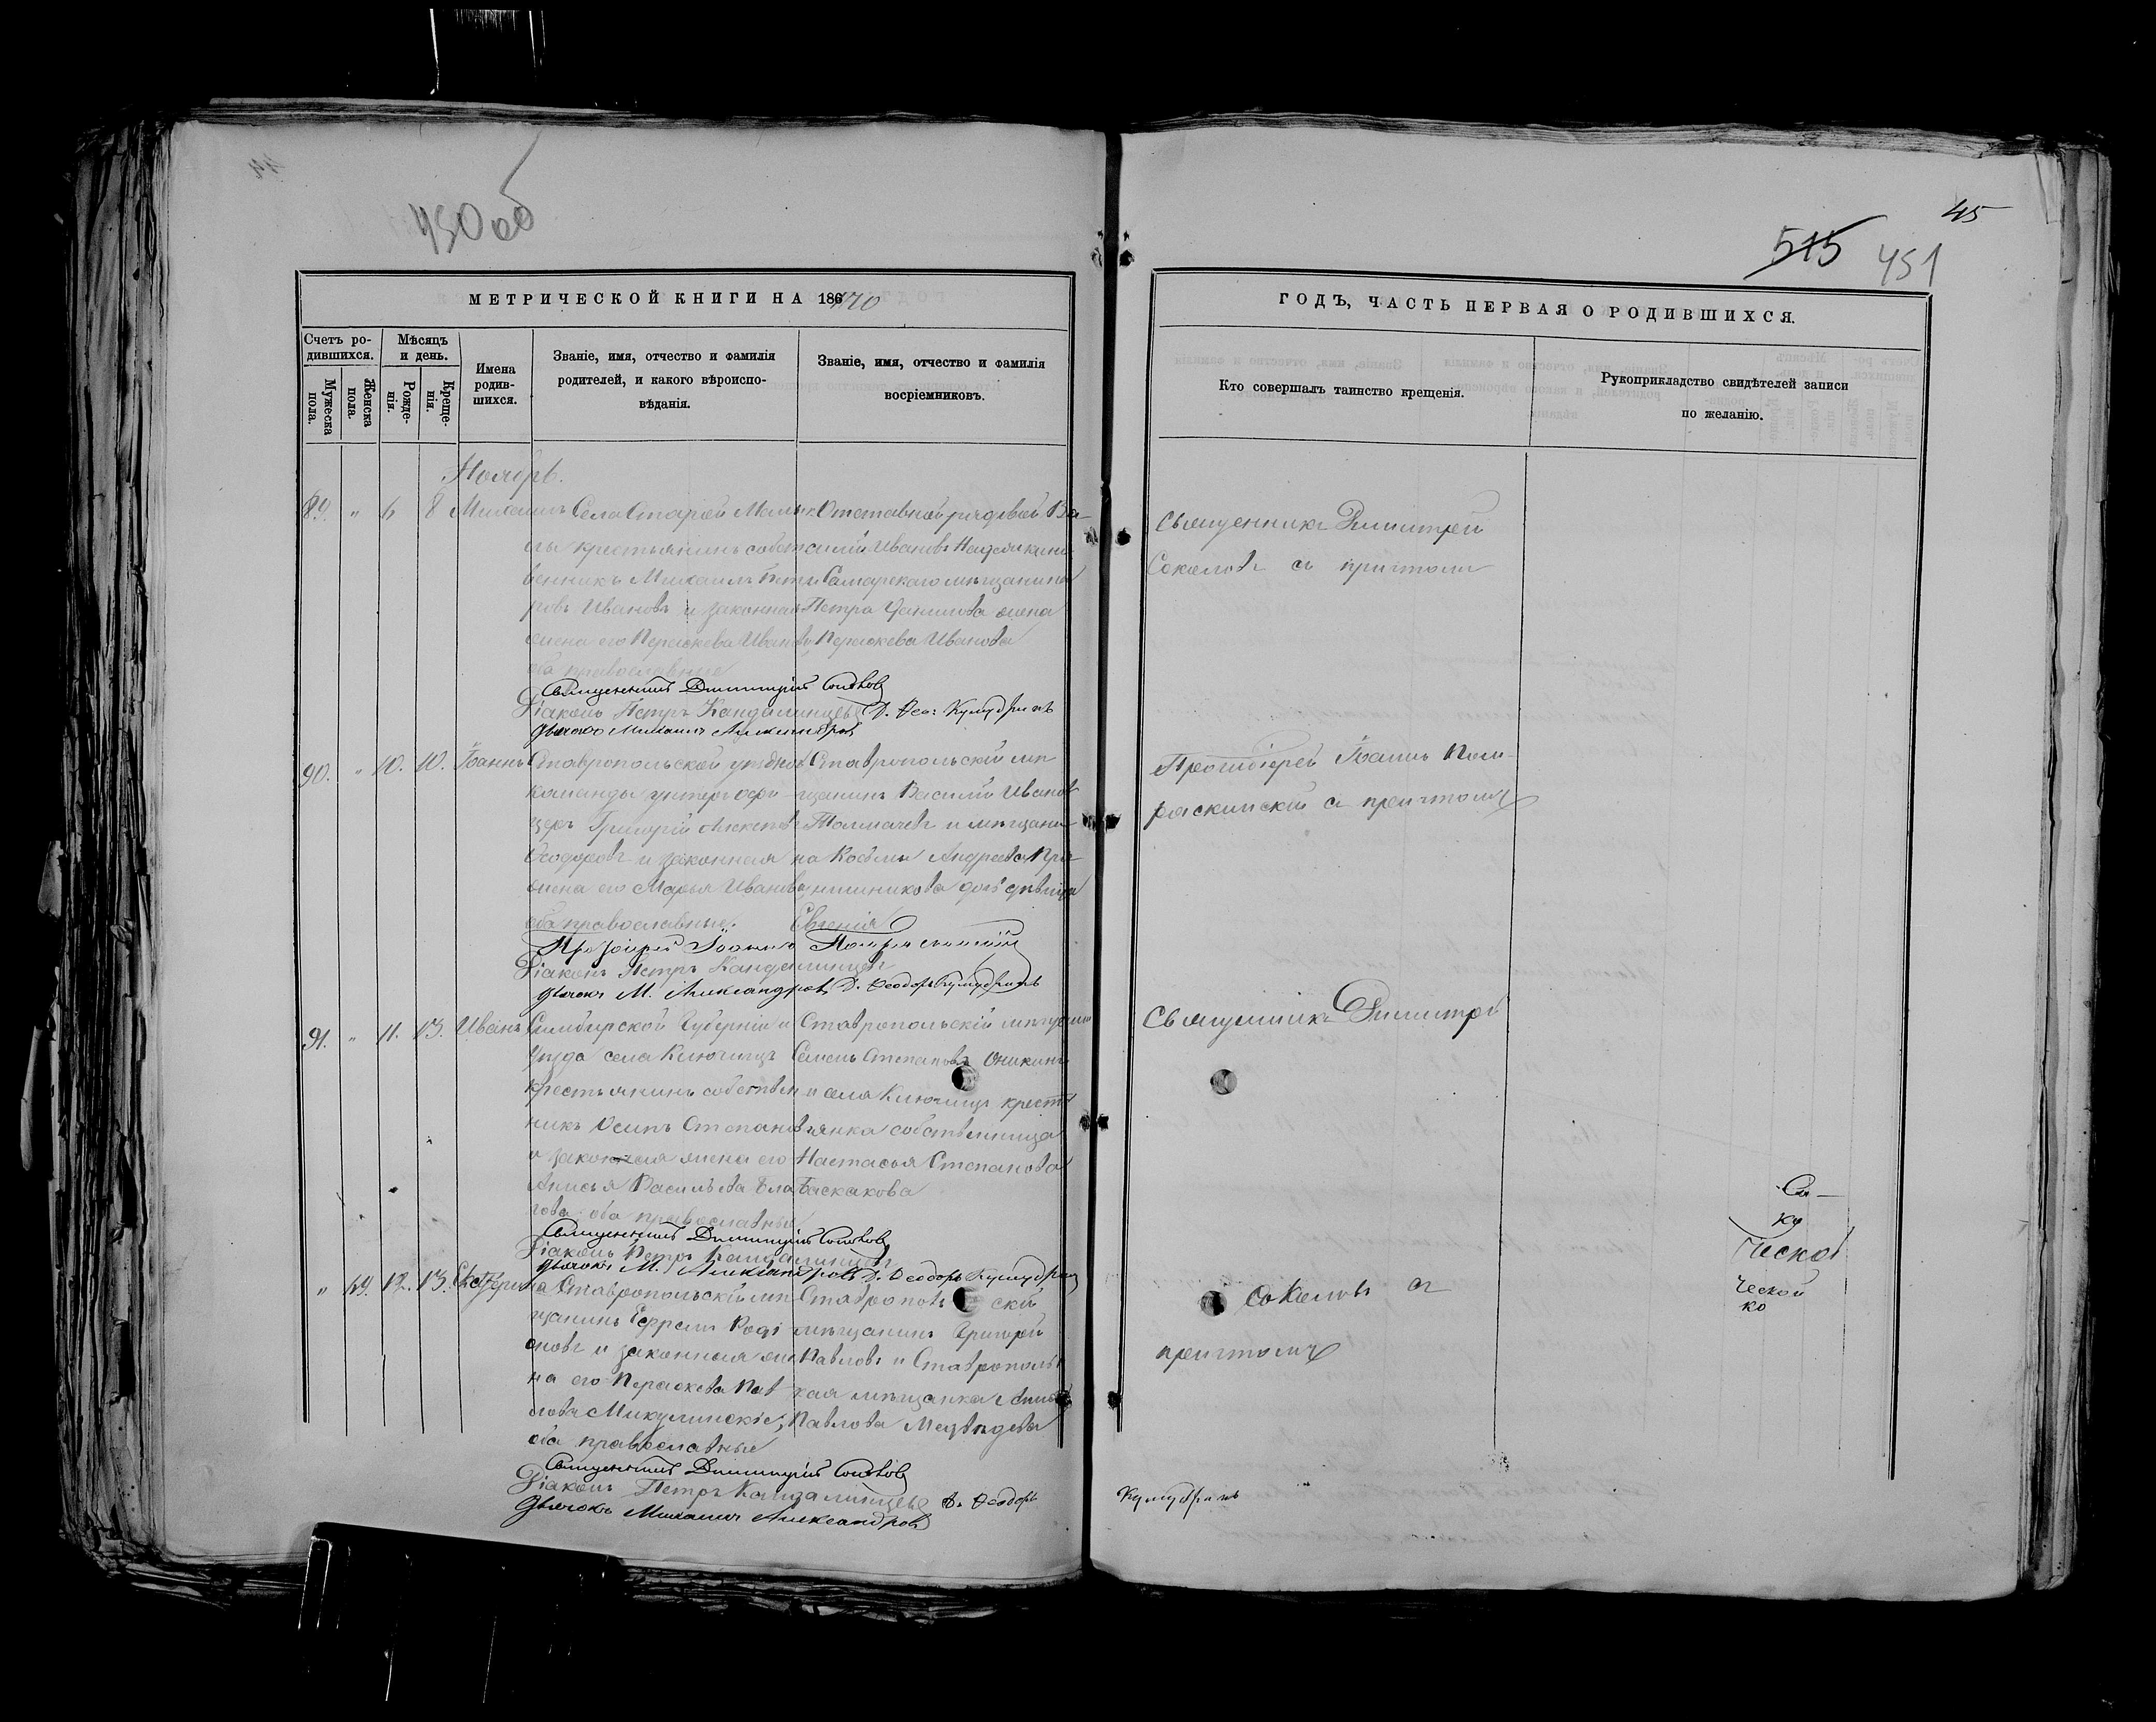 450 об
45
515 451
МЕТРИЧЕСКОЙ КНИГИ НА 1870
Счетъ ро-
дившихся.
Мужеска
пола.
Женска
пола.
Мѣсяцъ
и день.
Рожде-
нія.
Креще-
нія.
Имена
родив-
шихся.
Званіе, имя, отчество и фамилія
родителей, и какого вѣроиспо-
вѣданія.
Званіе, имя, отчество и фамилія
воспріемниковъ.
Ноябрь.
89. " 6 8 Михаилъ
Села Старой
крестьянинъ собст
венникъ Михаилъ Пет
ровъ Ивановъ и законная
жена его Параскева Иванова
оба православные
Отставной рядовой Ва-
силий Ивановъ
Самарскаго мѣщанина
Петра Данилова жена
Параскева Иванова
Священникъ Димитрій Соколовъ
Діаконъ Петръ Кандалинцевъ Д. Ѳео:
Дьячокъ Михаилъ Александровъ
90. " 10. 10. Іоаннъ
Ставропольской уѣздной
команды унтеръ офи-
церъ Григорій Алексѣевъ
Ѳеодоровъ и законная
жена его Марья Иванова
оба православные.
Ставропольскій мѣ
щанинъ Василій Ивановъ
Толмачевъ и мѣщани
на Косьмы Андреева Пря
нишникова дочь дѣвица
Евгенія
Протоіерей Іоаннъ
Діаконъ Петръ Кандалинцевъ
Дьячокъ М. Александровъ Д. Ѳеодоръ
91. " 11. 13. Иванъ
Симбирской Губерніи и
Уѣзда села Ключищъ
крестьянинъ собствен
никъ Осипъ Степановъ
и законная жена его
Анисья Васильева
оба православные
Ставропольскій мѣщанинъ
Семенъ Степановъ Оникинъ
и села Ключищъ кресть
янка собственница
Настасья Степанова
Баскакова
Священникъ Димитрій Соколовъ
Діаконъ Петръ Кандалинцевъ
Дьячокъ М. Александровъ Д. Ѳеодоръ
" 12. 13. Екатерина
Ставропольскій мѣ
щанинъ Ефремъ Роді
оновъ и законная же
на его Параскева Пав
лова Микулинскіе,
оба православные
Ставропольскій
мѣщанинъ Григорій
Павловъ и Ставрополь
ская мѣщанка Анна
Павлова Медвѣдева
Священникъ Димитрій Соколовъ
Діаконъ Петръ Кандалинцевъ Д. Ѳеодоръ
Дьячокъ Михаилъ Александровъ
ГОДЪ, ЧАСТЬ ПЕРВАЯ О РОДИВШИХСЯ.
Кто совершалъ таинство крещенія.
Рукоприкладство свидѣтелей записи
по желанію.
Священникъ Димитрій
Соколовъ съ причтомъ
Протоіерей Іоаннъ Пом-
раскинскій съ причтомъ
Священникъ Димитрій
Соколовъ съ
причтомъ
ческой
ческой
ко